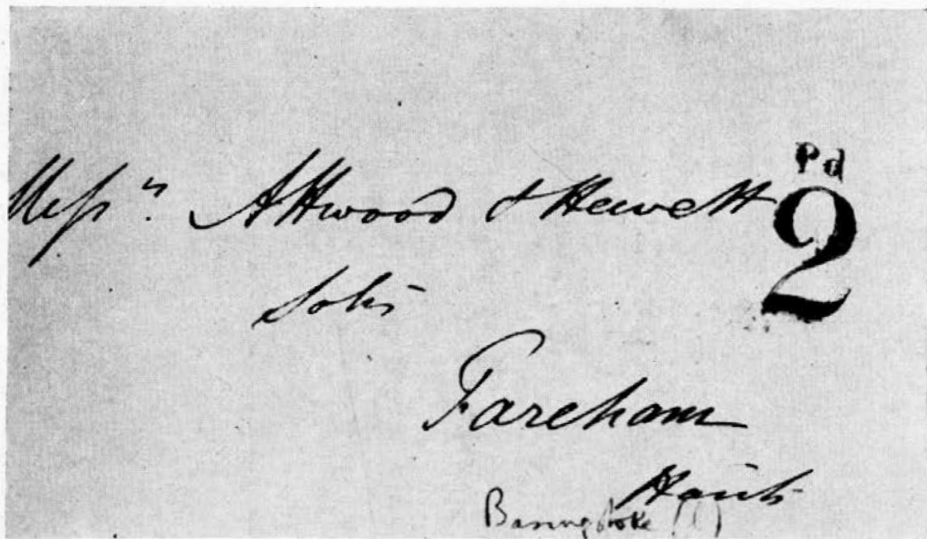 Pd
Messrs. Attwood & Hewett 2
Solrs
Fareham
Hants
Basingstoke (1)